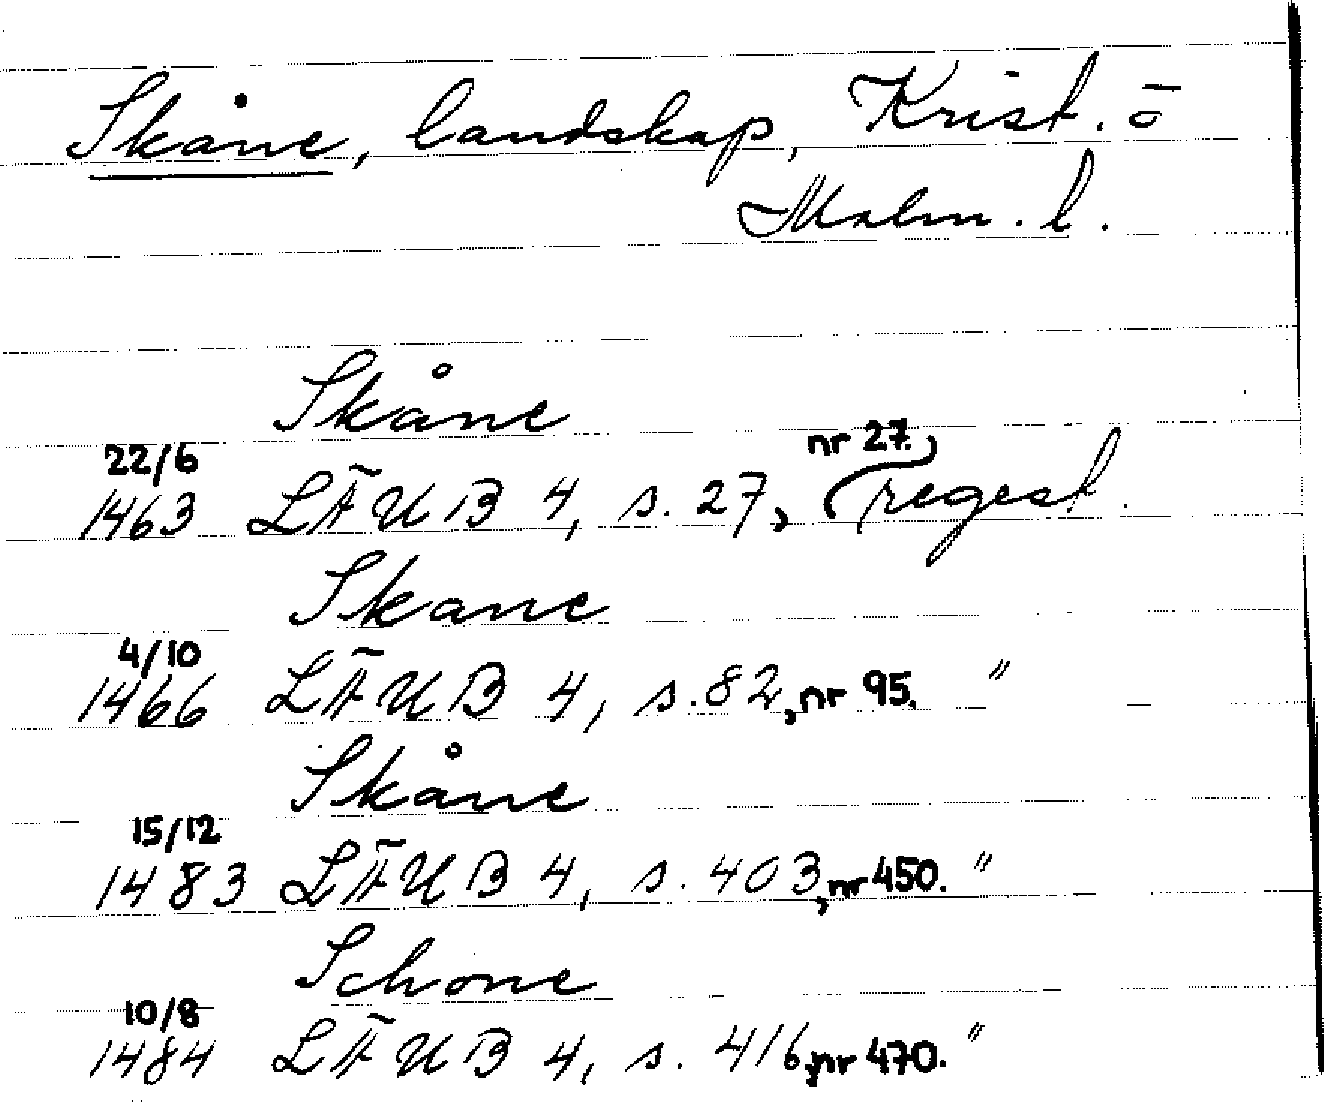 Skåne, landskap, Krist. o
Malm. l.
Skåne
22/6 nr 27.
1463 LÄUB 4, s. 27, (regest.
Skane
4/10
1466 LÄUB 4, s. 82, nr 95. "
Skåne
15/12
1483 LÄUB 4, s. 403, nr 450. "
Schone
10/8
1484 LÄUB 4, s. 416, nr 470. "